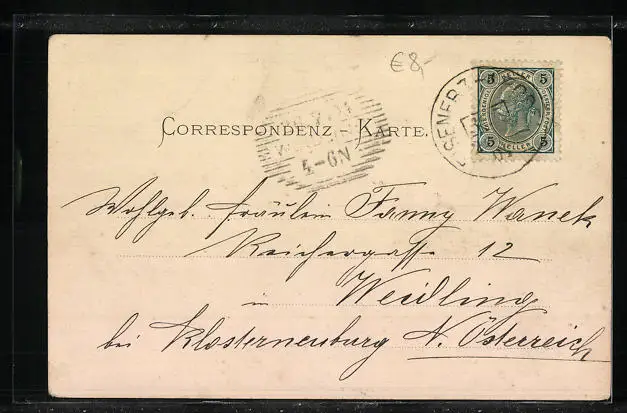 €8,-
CORRESPONDENZ - KARTE.
5 HELLER 5
5 HELLER 5
4-6N
Wohlgeb. Fräulein Fanny Wanek
Reichergasse 12
in Weidling
bei Klosterneuburg N. Österreich